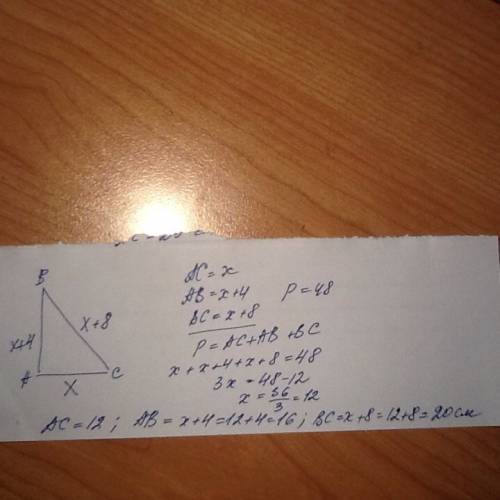 B
AC = x
AB = x+4 P = 48
BC = x+8
x+4 x+8
P = AC+AB+BC
A x C
x+x+4+x+8=48
3x = 48-12
x = 36/3 = 12
AC = 12 ; AB = x+4=12+4=16 ; BC=x+8=12+8=20см